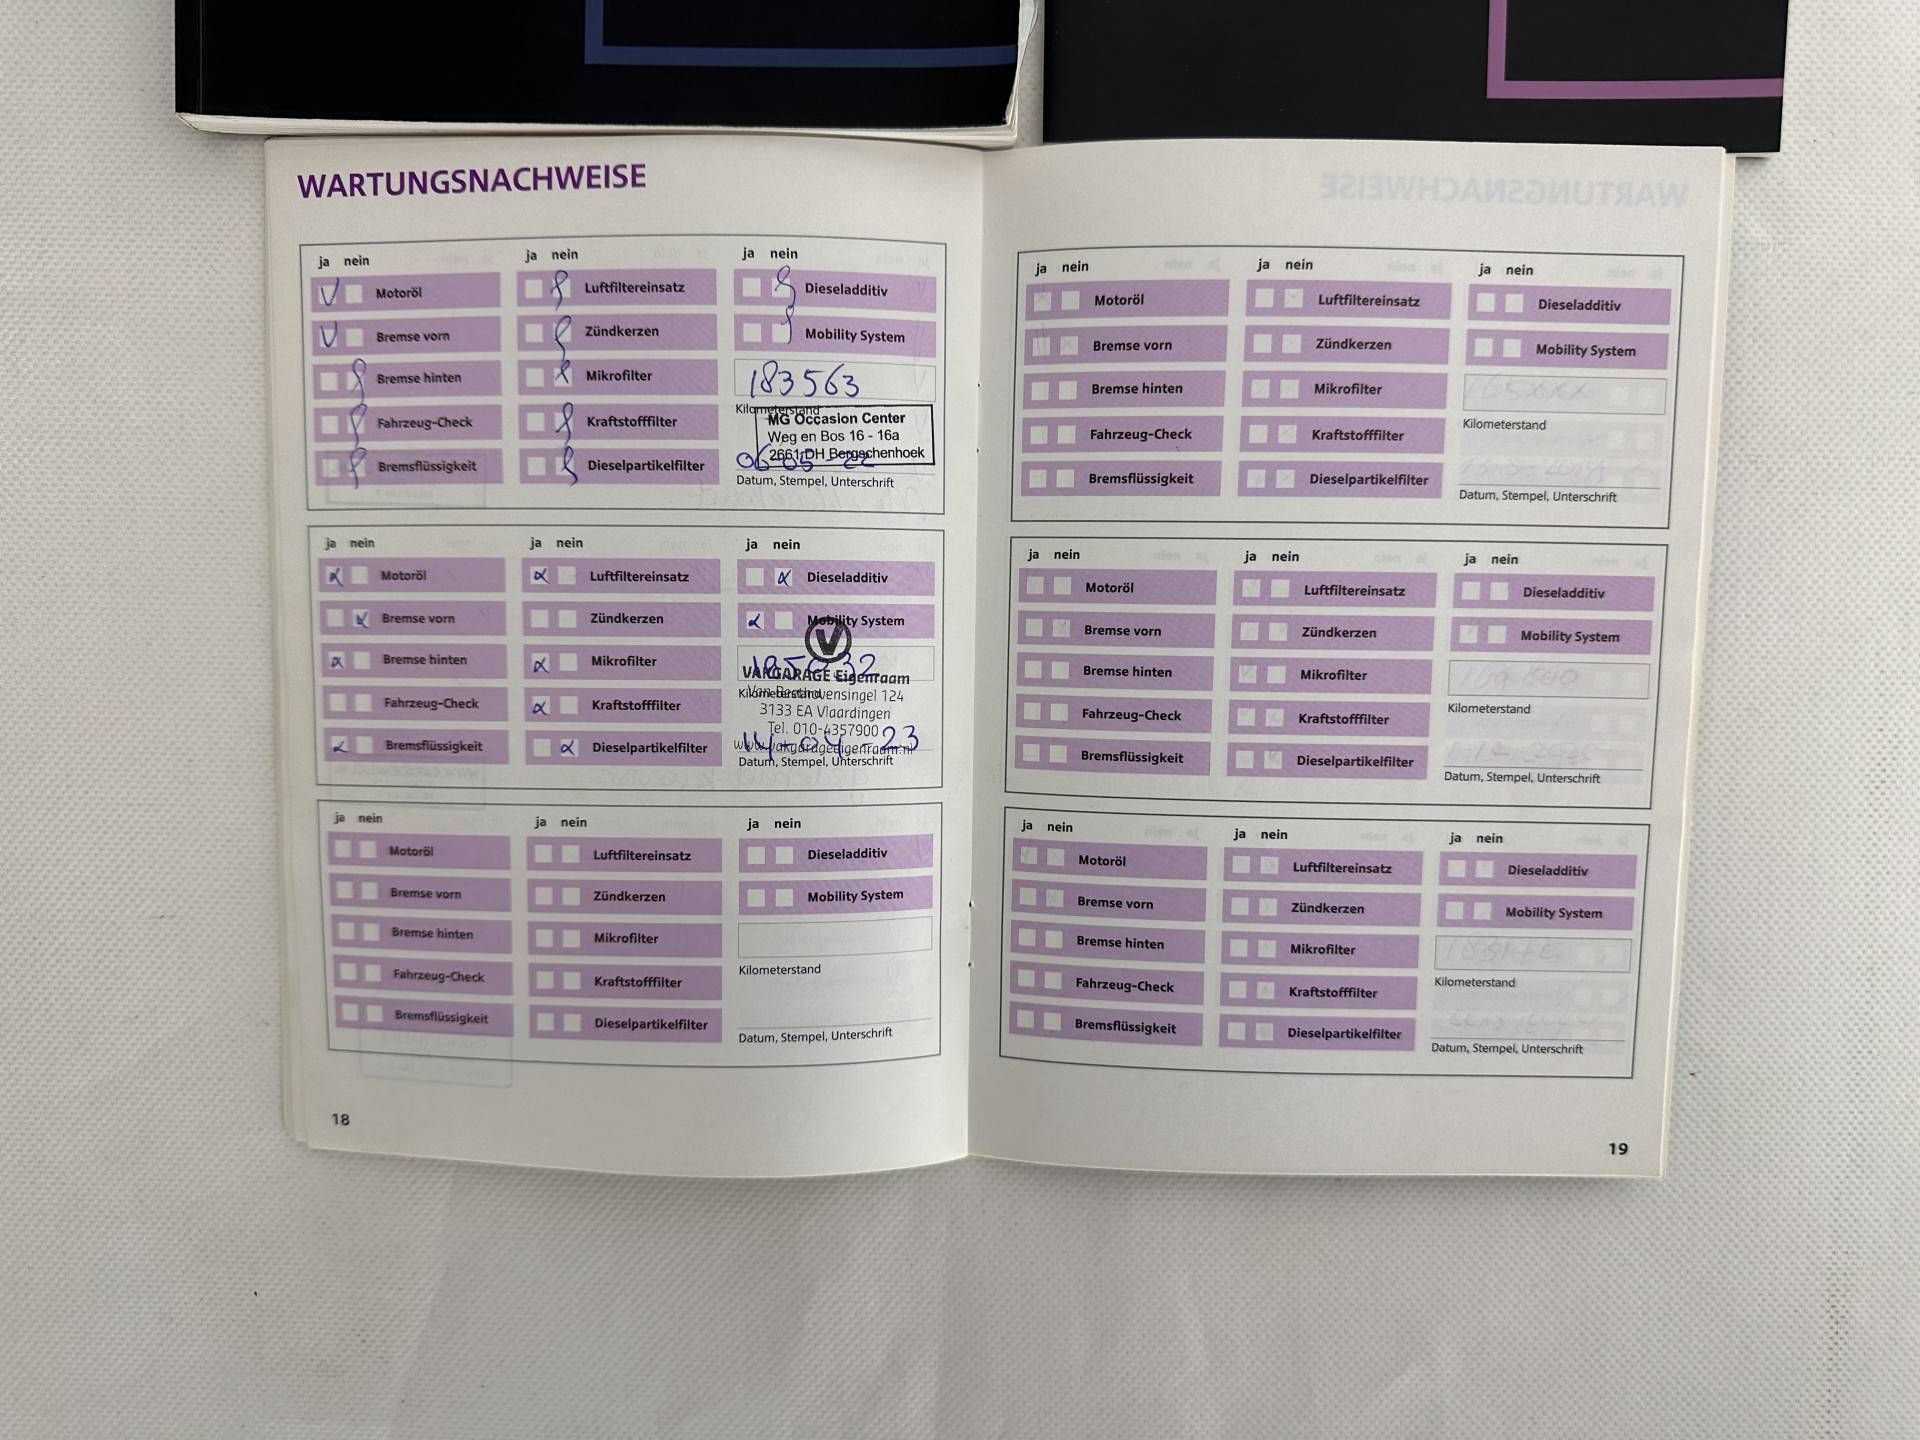 WARTUNGSNACHWEISE
ja nein
Motoröl
Bremse vorn
Bremse hinten
Fahrzeug-Check
Bremsflüssigkeit
ja nein
Luftfiltereinsatz
Zündkerzen
Mikrofilter
Kraftstofffilter
Dieselpartikelfilter
ja nein
Dieseladditiv
Mobility System
183563
Kilometerstand
MG Occasion Center
Weg en Bos 16 - 16a
2661 DH Bergschenhoek
06-05-22
Datum, Stempel, Unterschrift
ja nein
Motoröl
Bremse vorn
Bremse hinten
Fahrzeug-Check
Bremsflüssigkeit
ja nein
Luftfiltereinsatz
Zündkerzen
Mikrofilter
Kraftstofffilter
Dieselpartikelfilter
ja nein
Dieseladditiv
Mobility System
V
VAKGARAGE Eigenraam
Kilometerstand
124
3133 EA Vlaardingen
Tel. 010-4357900
www.vakgarageeigenraam.nl
14-04-23
Datum, Stempel, Unterschrift
ja nein
Motoröl
Bremse vorn
Bremse hinten
Fahrzeug-Check
Bremsflüssigkeit
ja nein
Luftfiltereinsatz
Zündkerzen
Mikrofilter
Kraftstofffilter
Dieselpartikelfilter
ja nein
Dieseladditiv
Mobility System
Kilometerstand
Datum, Stempel, Unterschrift
18
ja nein
Motoröl
Bremse vorn
Bremse hinten
Fahrzeug-Check
Bremsflüssigkeit
ja nein
Luftfiltereinsatz
Zündkerzen
Mikrofilter
Kraftstofffilter
Dieselpartikelfilter
ja nein
Dieseladditiv
Mobility System
Kilometerstand
Datum, Stempel, Unterschrift
ja nein
Motoröl
Bremse vorn
Bremse hinten
Fahrzeug-Check
Bremsflüssigkeit
ja nein
Luftfiltereinsatz
Zündkerzen
Mikrofilter
Kraftstofffilter
Dieselpartikelfilter
ja nein
Dieseladditiv
Mobility System
Kilometerstand
Datum, Stempel, Unterschrift
ja nein
Motoröl
Bremse vorn
Bremse hinten
Fahrzeug-Check
Bremsflüssigkeit
ja nein
Luftfiltereinsatz
Zündkerzen
Mikrofilter
Kraftstofffilter
Dieselpartikelfilter
ja nein
Dieseladditiv
Mobility System
Kilometerstand
Datum, Stempel, Unterschrift
19